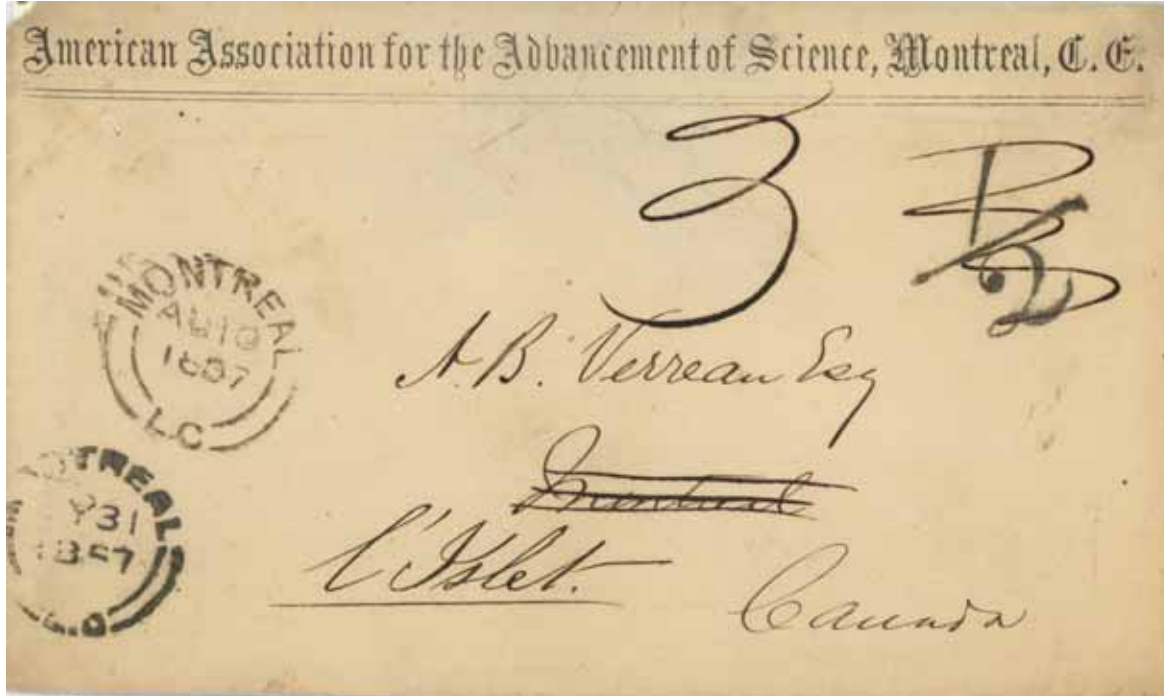 American Association for the Advancement of Science, Montreal, C. E.
3
MONTREAL
AU 10
1857
L.C
A. B. Verreau Esq
Montreal
l'Islet.
Canada
MONTREAL
Y 31
1857
L.C